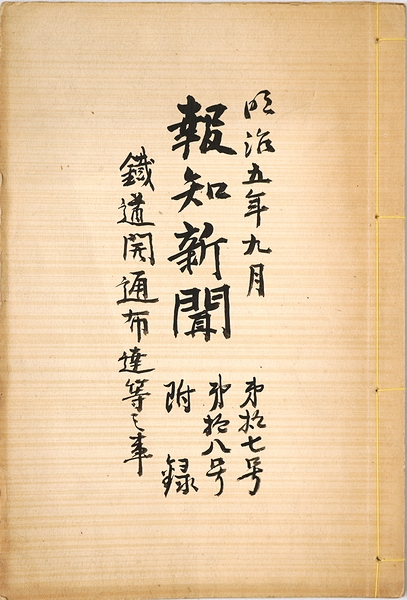 明治五年九月
第拾七号
第拾八号
報知新聞
附録
鐵道開通布達等之事